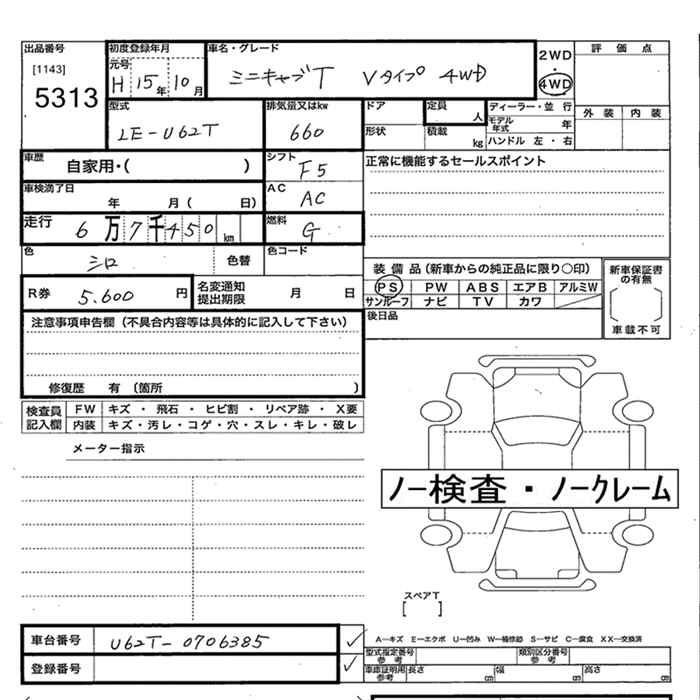 出品番号 初度登録年月 車名・グレード 評価点
[1143] 元号 2WD
5313 H 15年 10月 ミニキャブT Vタイプ 4WD ・ 4WD
外装 内装
型式 排気量又はkw ドア 定員 人 ディーラー・並行
LE-U62T 660 形状 積載 kg モデル年式 年
ハンドル 左・右
車歴 自家用・( ) シフト F5 正常に機能するセールスポイント
車検満了日 年 月( 日) AC AC
走行 6万7千450km 燃料 G
色 シロ 色替 色コード
装備品(新車からの純正品に限り○印) 新車保証書の有無
R券 5.600円 名変通知提出期限 月 日 PS PW ABS エアB アルミW
サンルーフ ナビ TV カワ
車載不可
注意事項申告欄(不具合内容等は具体的に記入して下さい) 後日品
修復歴 有 (箇所 )
検査員記入欄 FW キズ・飛石・ヒビ割・リペア跡・X要
内装 キズ・汚レ・コゲ・穴・スレ・キレ・破レ
メーター指示
ノー検査・ノークレーム
スペアT
[ ]
車台番号 U62T-0706385
A―キズ E―エクボ U―凹み W―補修跡 S―サビ C―腐食 XX―交換済
型式指定番号 参考 類別区分番号 参考
登録番号 車庫証明用参考 長さ cm 幅 cm 高さ cm